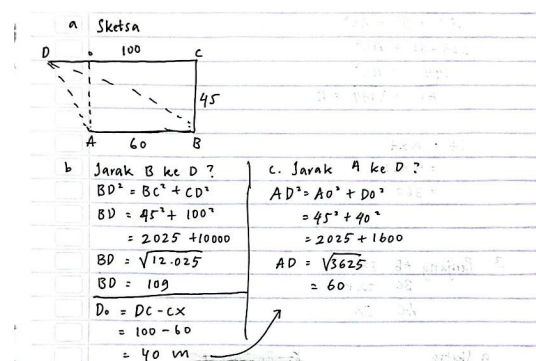 a Sketsa
D o 100 C
45
A 60 B
b Jarak B ke D ?
BD² = BC² + CD²
BD = 45² + 100²
= 2025 + 10000
BD = √12.025
BD = 109
Do = DC - CX
= 100 - 60
= 40 m
c. Jarak A ke D ?
AD² = AO² + DO²
= 45² + 40²
= 2025 + 1600
AD = √3625
= 60